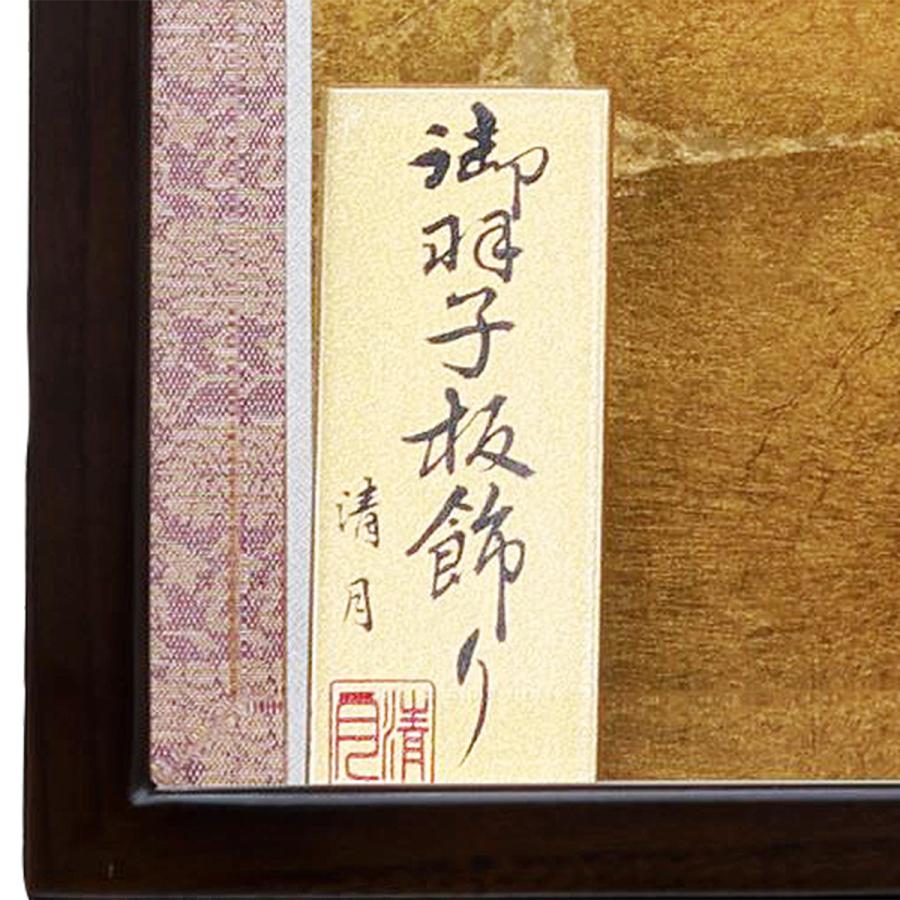 御羽子板飾り
清月
清月